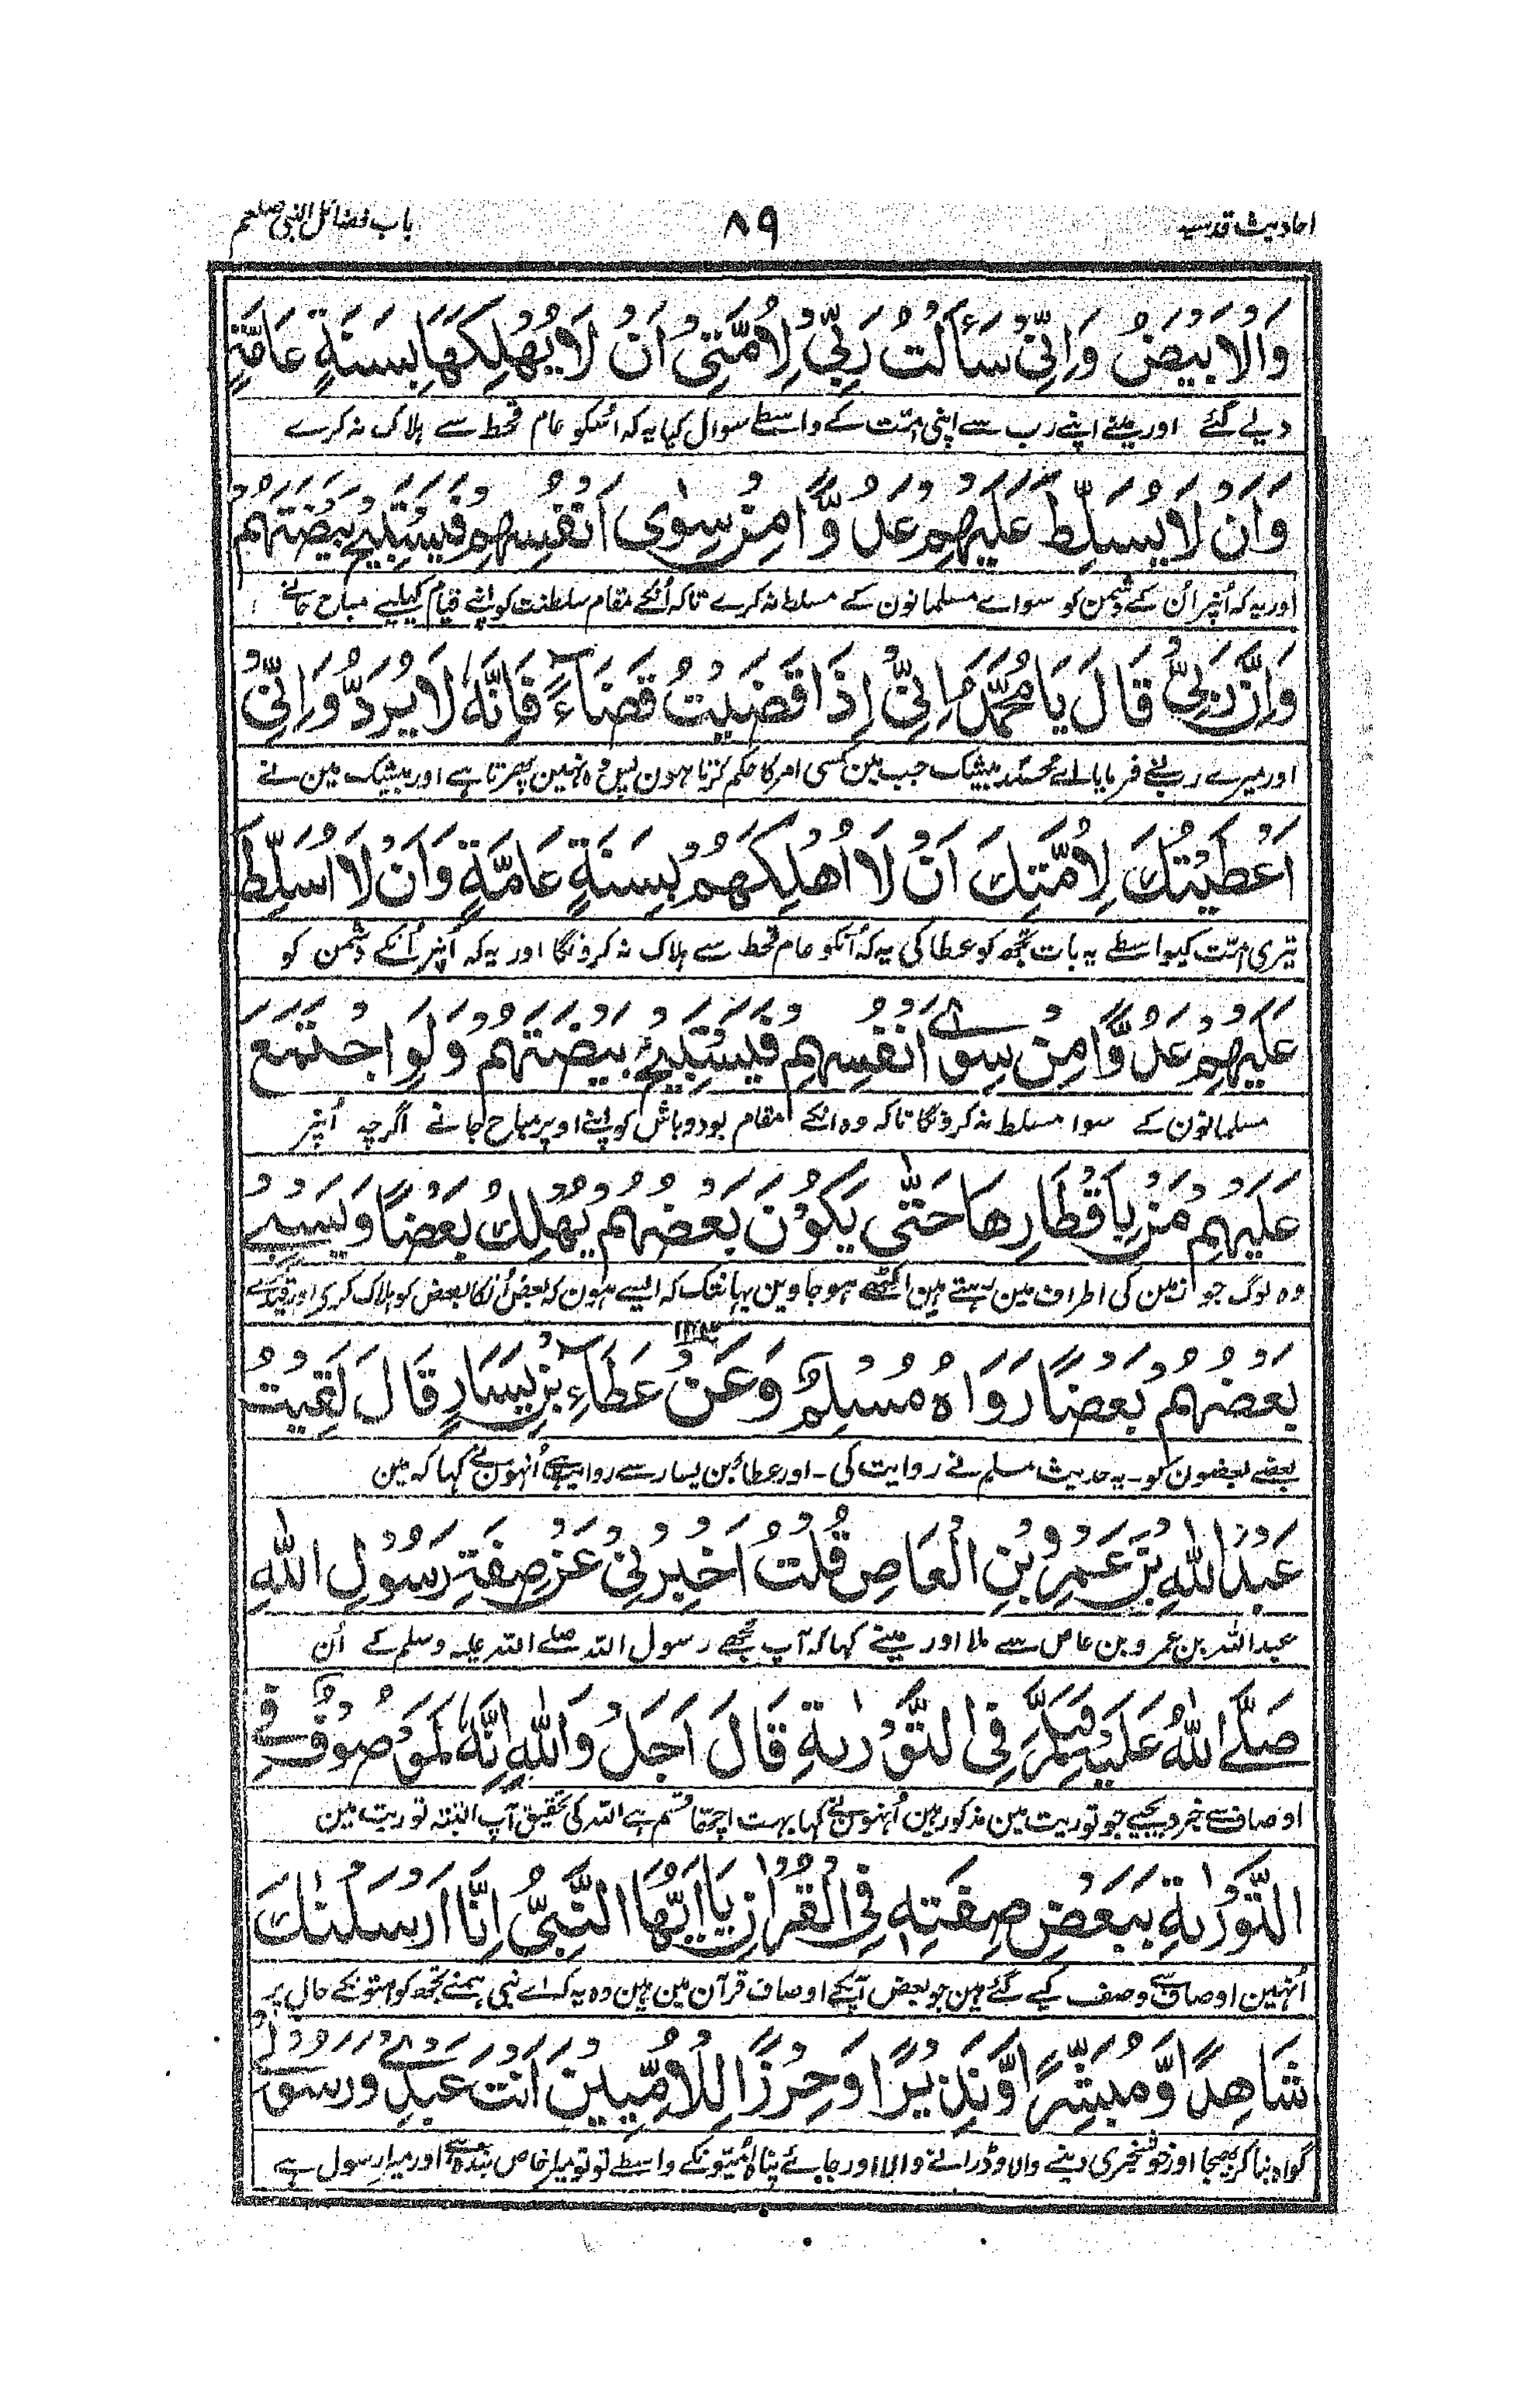 احادیث قدسیہ ۸۹ باب فضائل النبی صلعم
وَالْاَبْیَضَ وَاِنِّیْ سَأَلْتُ رَبِّیْ لِاُمَّتِیْ اَنْ لَا یُهْلِكَهَا بِسَنَةٍ عَامَّةٍ
دیے گئے اور مینے اپنے رب سے اپنی امّت کے واسطے سوال کیا یہ کہ اُسکو عام قحط سے ہلاک نہ کرے
وَاَنْ لَا یُسَلِّطَ عَلَیْهِمْ عَدُوًّا مِنْ سِوٰی اَنْفُسِهِمْ فَیَسْتَبِیْحَ بَیْضَتَهُمْ
اور یہ کہ اُنپر اُن کے دشمن کو سواے مسلمانون کے مسلط نہ کرے تاکہ اُنکے مقام سلطنت کو اپنے قیام کیلیے مباح جانے
وَاِنَّ رَبِّیْ قَالَ یَا مُحَمَّدُ اِنِّیْ اِذَا قَضَیْتُ قَضَاءً فَاِنَّهٗ لَا یُرَدُّ وَاِنِّیْ
اور میرے رب نے فرمایا اے محمد بیشک جب مین کسی امر کا حکم کرتا ہون پس وہ نہین پھرتا ہے اور بیشک مین نے
اَعْطَیْتُكَ لِاُمَّتِكَ اَنْ لَا اُهْلِكَهُمْ بِسَنَةٍ عَامَّةٍ وَاَنْ لَا اُسَلِّطَ
تیری امّت کیواسطے یہ بات تجھ کو عطا کی یہ کہ اُنکو عام قحط سے ہلاک نہ کرونگا اور یہ کہ اُنپر اُنکے دشمن کو
عَلَیْهِمْ عَدُوًّا مِنْ سِوٰی اَنْفُسِهِمْ فَیَسْتَبِیْحَ بَیْضَتَهُمْ وَلَوِ اجْتَمَعَ
مسلمانون کے سوا مسلط نہ کرونگا تاکہ وہ انکے مقام بودوباش کو اپنے اوپر مباح جانے اگرچہ اُنپر
عَلَیْهِمْ مَنْ بِاَقْطَارِهَا حَتّٰی یَكُوْنَ بَعْضُهُمْ یُهْلِكُ بَعْضًا وَیَسْبِیْ
وہ لوگ جو زمین کی اطراف مین بستے ہین اکٹھے ہو جاوین یہانتک کہ ایسے ہون کہ بعض اُنکا بعض کو ہلاک کرے اور قید کرے
بَعْضُهُمْ بَعْضًا رَوَاهُ مُسْلِمٌ وَعَنْ عَطَاءِ بْنِ یَسَارٍ قَالَ لَقِیْتُ
بعضے بعضون کو ۔ یہ حدیث مسلم نے روایت کی ۔ اور عطاء بن یسار سے روایت ہے اُنہون نے کہا کہ مین
عَبْدَ اللّٰهِ بْنَ عَمْرِو بْنِ الْعَاصِ قُلْتُ اَخْبِرْنِیْ عَنْ صِفَةِ رَسُوْلِ اللّٰهِ
عبداللہ بن عمرو بن عاص سے ملا اور مینے کہا کہ آپ مجھے رسول اللہ صلے اللہ علیہ وسلم کے اُن
صَلَّے اللّٰهُ عَلَیْهِ وَسَلَّمَ فِی التَّوْرٰىةِ قَالَ اَجَلْ وَاللّٰهِ اِنَّهٗ لَمَوْصُوْفٌ فِی
اوصاف سے خبر دیجیے جو توریت مین مذکور ہین اُنہون نے کہا بہت اچھا قسم ہے اللہ کی تحقیق آپ البتہ توریت مین
التَّوْرٰىةِ بِبَعْضِ صِفَتِهٖ فِی الْقُرْاٰنِ یَا اَیُّهَا النَّبِیُّ اِنَّا اَرْسَلْنٰكَ
اُنہین اوصاف سے وصف کیے گئے ہین جو بعض آپکے اوصاف قرآن مین ہین وہ یہ کہ اے نبی ہمنے تجھ کو امتونکے حال پر
شَاهِدًا وَّمُبَشِّرًا وَّنَذِیْرًا وَحِرْزًا لِلْاُمِّیِّیْنَ اَنْتَ عَبْدِیْ وَرَسُوْلِیْ
گواہ بنا کر بھیجا اور خوشخبری دینے والا و ڈرانے والا اور جاے پناہ اُمّیونکے واسطے تو تو میرا خاص بندہ ہے اور میرا رسول ہے